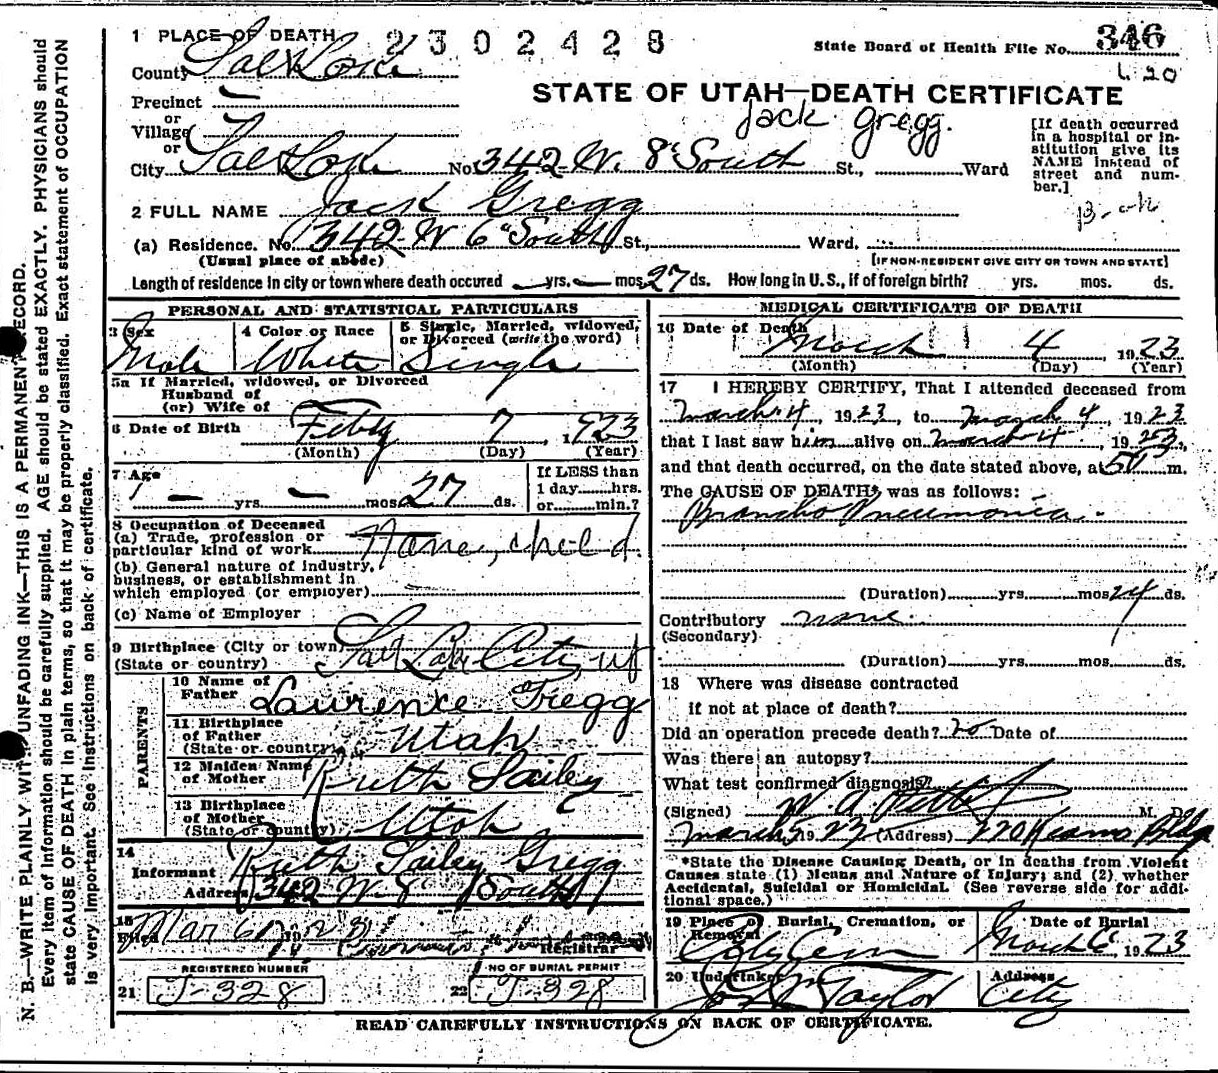 N. B.—WRITE PLAINLY WITH UNFADING INK—THIS IS A PERMANENT RECORD.
Every item of information should be carefully supplied. AGE should be stated EXACTLY. PHYSICIANS should
state CAUSE OF DEATH in plain terms, so that it may be properly classified. Exact statement of OCCUPATION
is very important. See instructions on back of certificate.
1 PLACE OF DEATH 2302428
State Board of Health File No. 346
County Salt Lake
Precinct —
or
Village
or
City Salt Lake No. 342 W. 8" South St., Ward
STATE OF UTAH—DEATH CERTIFICATE
Jack Gregg.
[If death occurred
in a hospital or in-
stitution give its
NAME instead of
street and num-
ber.]
2 FULL NAME Jack Gregg
(a) Residence. No. 342 W 6" South St., Ward,
(Usual place of abode) [IF NON-RESIDENT GIVE CITY OR TOWN AND STATE]
Length of residence in city or town where death occured — yrs. — mos. 27 ds. How long in U. S., if of foreign birth? yrs. mos. ds.
PERSONAL AND STATISTICAL PARTICULARS
3 Sex 4 Color or Race 5 Single, Married, widowed,
or Divorced (write the word)
Male White Single
5a If Married, widowed, or Divorced
Husband of
(or) Wife of
6 Date of Birth Feby 7, 1923
(Month) (Day) (Year)
7 Age If LESS than
1 day hrs.
— yrs. — mos. 27 ds. or min.?
8 Occupation of Deceased
(a) Trade, profession or
particular kind of work None, child
(b) General nature of industry,
business, or establishment in
which employed (or employer)
(c) Name of Employer
9 Birthplace (City or town)
(State or country) Salt Lake City, Ut
PARENTS
10 Name of
Father Laurence Gregg
11 Birthplace
of Father
(State or country) Utah
12 Maiden Name
of Mother Ruth Sailey
13 Birthplace
of Mother
(State or country) Utah
14
Informant Ruth Sailey Gregg
Address 342 W 8" South
15
Filed Mar 6
Registrar
REGISTERED NUMBER NO OF BURIAL PERMIT
21 J-328 22 J-328
MEDICAL CERTIFICATE OF DEATH
16 Date of Death
March 4, 1923
(Month) (Day) (Year)
17 I HEREBY CERTIFY, That I attended deceased from
March 4, 1923, to March 4, 1923
that I last saw him alive on March 4, 1923,
and that death occurred, on the date stated above, at m.
The CAUSE OF DEATH* was as follows:
Broncho Pneumonia.
(Duration) yrs. mos. ds.
Contributory none.
(Secondary)
(Duration) yrs. mos. ds.
18 Where was disease contracted
if not at place of death?
Did an operation precede death? no Date of
Was there an autopsy?
What test confirmed diagnosis?
(Signed) M. D.
March 5 1923 (Address) Kearns Bldg
*State the Disease Causing Death, or in deaths from Violent
Causes state (1) Means and Nature of Injury; and (2) whether
Accidental, Suicidal or Homicidal. (See reverse side for addi-
tional space.)
19 Place of Burial, Cremation, or
Removal Date of Burial
City Cem March 6, 1923
20 Undertaker Address
Taylor City
READ CAREFULLY INSTRUCTIONS ON BACK OF CERTIFICATE.